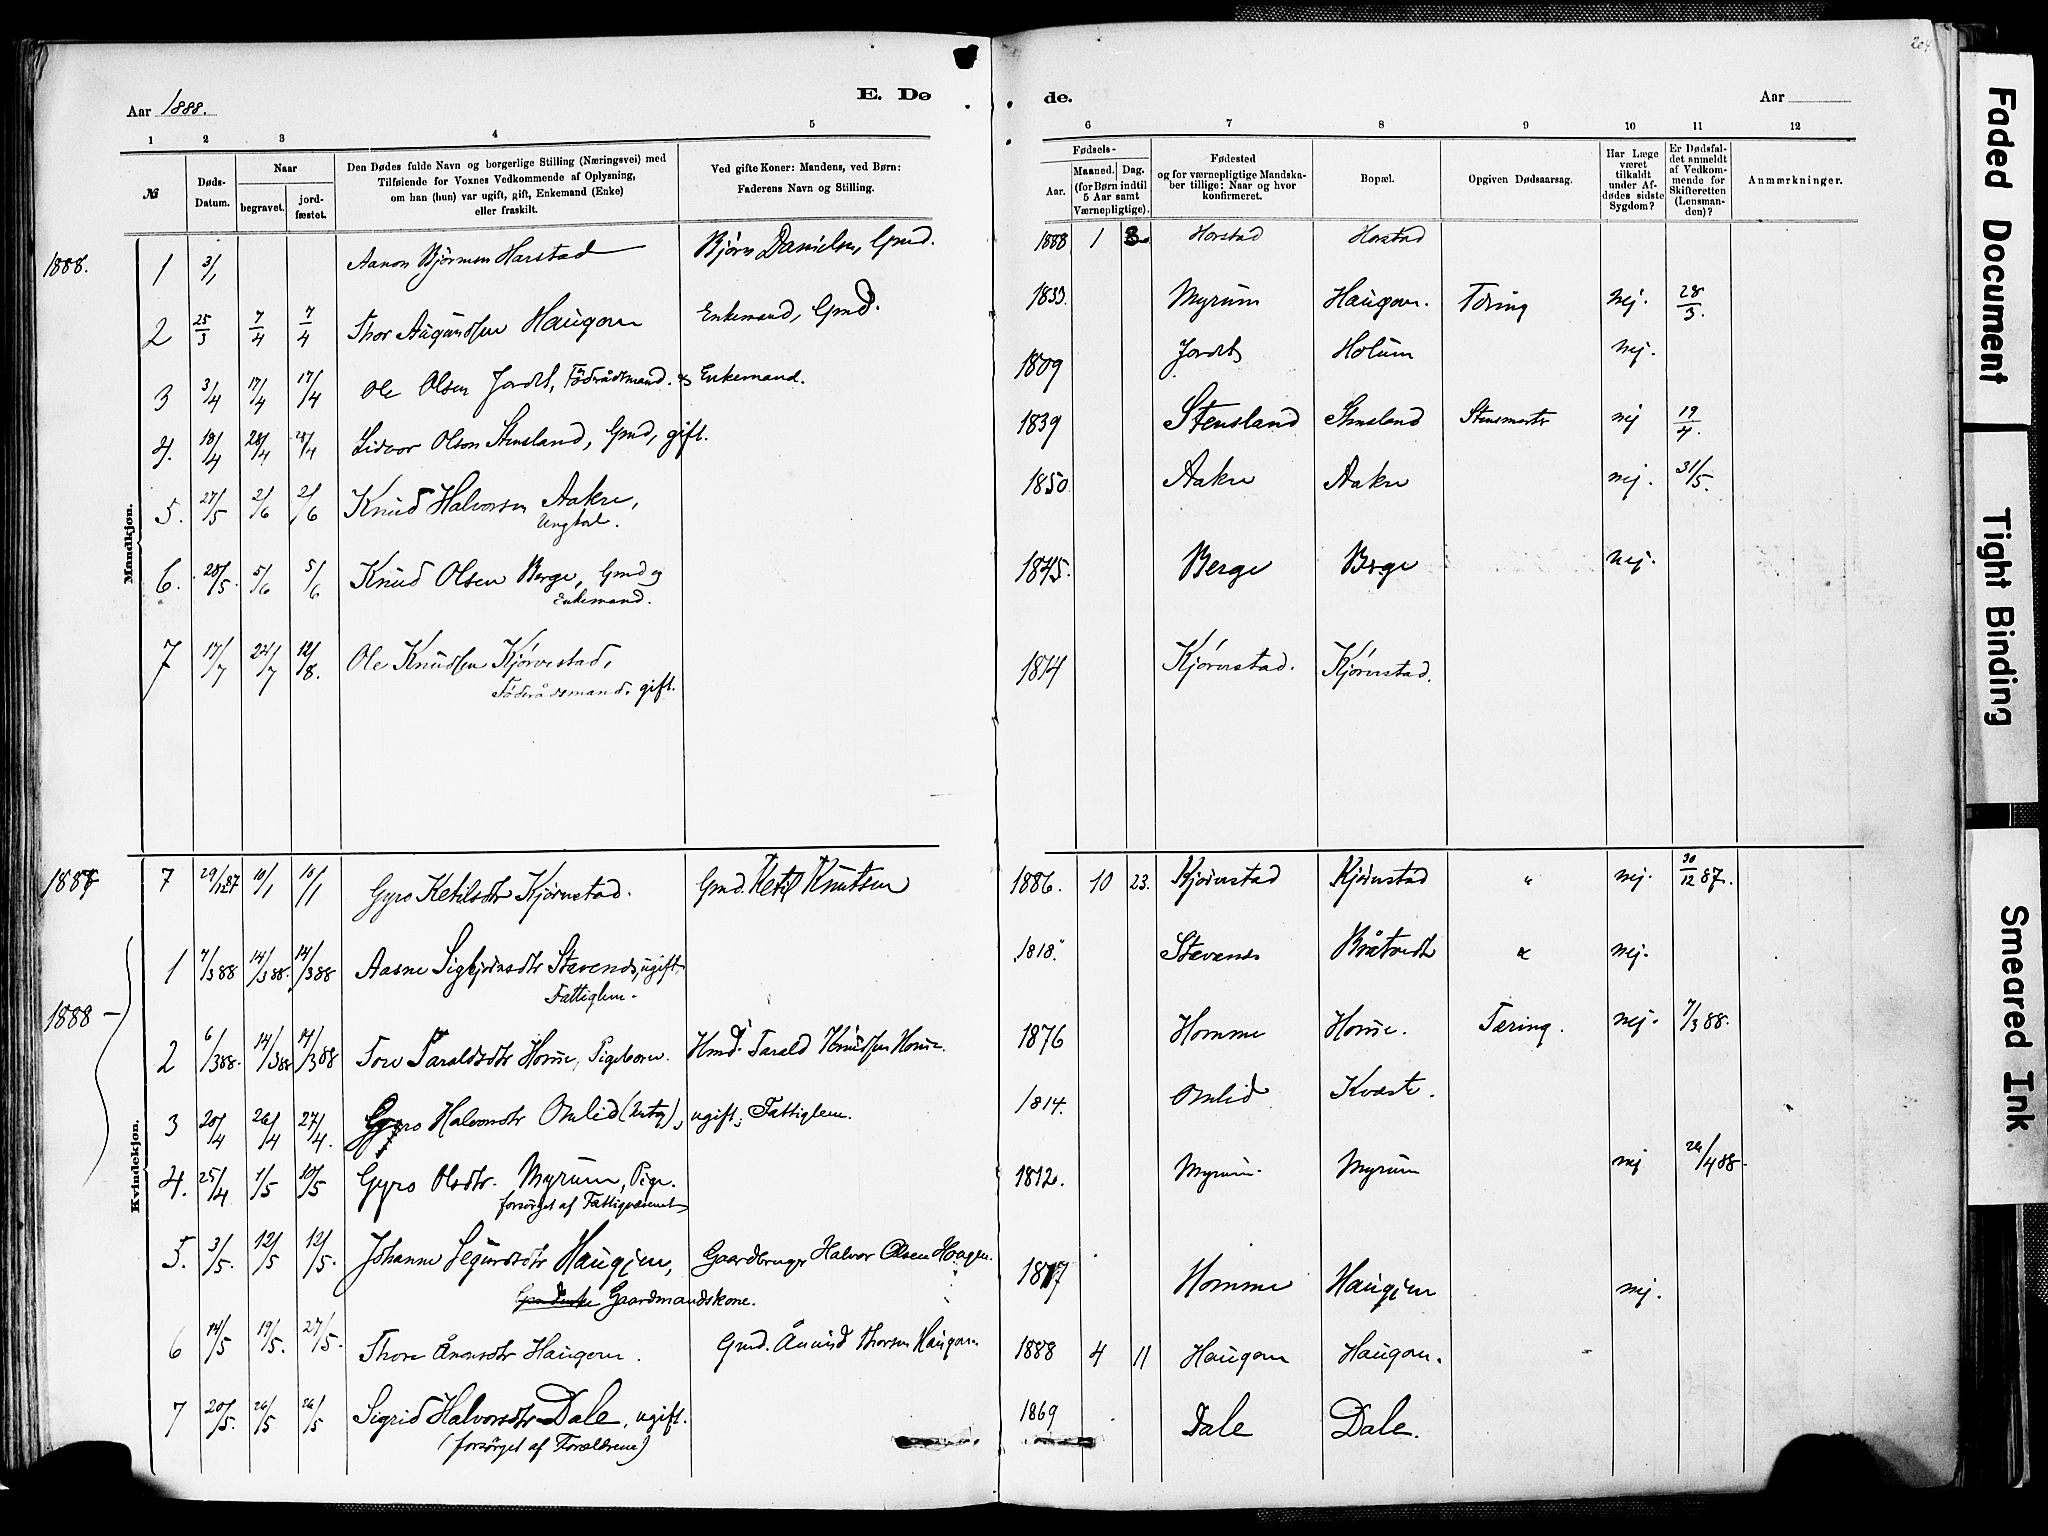 204
Aar 1888.
E. Dø
de.
Aar
1 2 3 4 5
6 7 8 9 10 11 12
№
Døds-
Datum.
Naar
begravet.
jord-
fæstet.
Den Dødes fulde Navn og borgerlige Stilling (Næringsvei) med
Tilføiende for Voxnes Vedkommende af Oplysning,
om han (hun) var ugift, gift, Enkemand (Enke)
eller fraskilt.
Ved gifte Koner: Mandens, ved Børn:
Faderens Navn og Stilling.
Fødsels-
Aar.
Maaned.
Dag.
(for Børn indtil
5 Aar samt
Værnepligtige).
Fødested
og for værnepligtige Mandska-
ber tillige: Naar og hvor
konfirmeret.
Bopæl.
Opgiven Dødsaarsag.
Har Læge
været
tilkaldt
under Af-
dødes sidste
Sygdom?
Er Dødsfal-
det anmeldt
af Vedkom-
mende for
Skifteretten
(Lensman-
den)?
Anmærkninger.
Mandkjøn.
1888.
1 3/1 Aanon Bjørnsen Harstad Bjørn Danielsen, Gmd. 1888 1 Harstad Harstad
2 25/3 7/4 7/4 Thor Augundsen Haugom Enkemand, Gmd. 1833. Myrum Haugom. Tæring nej. 28/3.
3 3/4 17/4 17/4 Ole Olsen Jordet, Föderådsmand. & Enkemand. 1809 Jordet Holum nej.
4. 18/4 28/4 28/4 Sidvor Olson Stensland, Gmd, gift. 1839 Stensland Stensland nej 19/4.
5. 27/5 2/6 2/6 Knud Halvorsen Aakre,
Ungkarl.
1850 Aakre Aakre nej. 31/5.
6. 28/5. 5/6 5/6 Knud Olsen Berge, Gmd og
Enkemand.
1845. Berge Berge nej.
7 17/7 22/7 12/8. Ole Knudsen Kjørvestad,
Föderådsmand, gift.
1814 Kjørvestad. Kjørvestad.
Kvindekjøn.
1887
7 29/12 87 10/1 10/1 Gyro Ketilsdtr Kjørvestad. Gmd. Ketil Knutsen 1886. 10 23. Kjørvestad Kjørvestad " nej. 30/12 87.
1888
1 7/3 88 14/3 88. 14/3 88 Aasne Sigbjørnsdtr Stavenes, ugift,
Fattiglem.
1818. Stavenes Bråtvedt " nej.
2 6/3 88. 14/3 88 14/3 88 Tore Taraldsdtr Home, Pigebarn. Hmd. Tarald Knudsen Home. 1876 Homme Home. Tæring. nej. 7/3 88.
3 20/4 26/4 27/4. Gyro Halvorsdtr Omlid, ugift; Fattiglem. 1814. Omlid Kvaste.
4. 25/4 1/5 10/5 Gyro Olsdtr. Myrum, Pige.
forsörget af Fattigvæsenet
1812. Myrum. Myrum nej 26/4 88.
5. 3/5. 12/5 12/5. Johanne Segurdsdtr Haugjen, Gaardbruger Halvor Olsen Haugen.
Gaardmandskone.
1817 Homme Haugjen nej.
6 14/5 19/5. 27/5. Thore Ånonsdtr Haugom. Gmd. Ånund Thorsen Haugom. 1888 4 11 Haugom Haugom.
7 20/5. 26/5 26/5 Sigrid Halvorsdtr Dale, ugift.
(forsörget af Foreldrene)
1869 Dale Dale.
Faded Document
Tight Binding
Smeared Ink